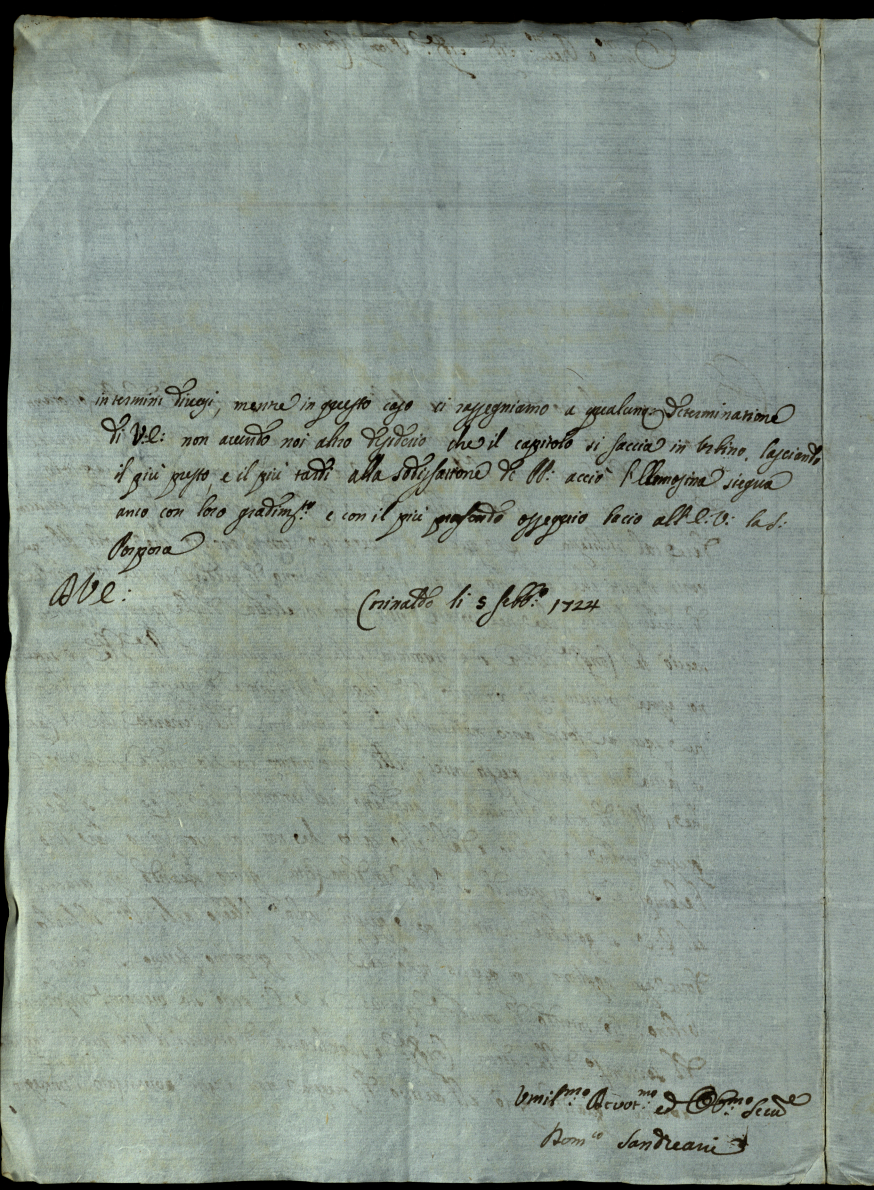 in termini diversi, mentre in questo caso ci rassegniamo a qualunq determinatione
di V.E: non avendo noi altro desiderio che il capitolo si faccia in Urbino, lasciando
il più presto, e il più tardi alla sodisfattione de PP: acciò l'Elemosina siegua
anco con loro gradim.to e con il più profondo ossequio bacio all'E:V: la S:
Porpora
D V E:
Corinaldo li 5 Febb.o 1724
Umil.mo Devot.mo ed Obb.mo
Dom.co Sandreani